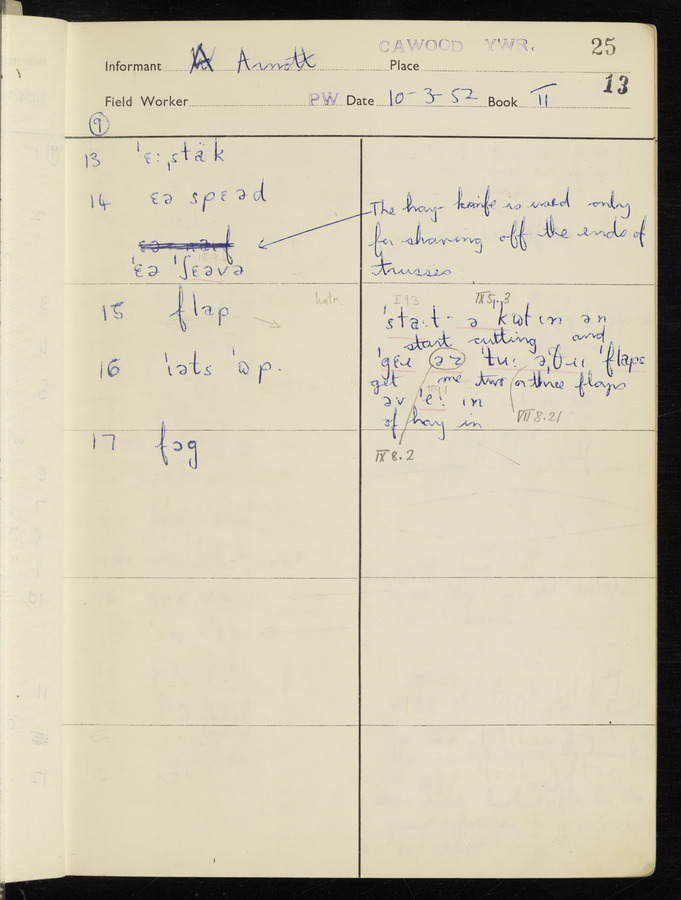 CAWOOD YWR. 25
Informant A Arnott Place
13
Field Worker PW Date 10-3-52 Book II
9
13 'ɛ:ˌstäk
14 ɛə spɛəd
The hay-knife is used only
for shaving off the ends of
trusses
'ɛə 'ʃɛəvə
15 flap
I 93 IX 5. 3
'sta:t· ə kʊtɪn ən
start cutting and
16 'ɪəts 'ʊp.
get me two or three flaps
əv 'e: ɪn
of hay in
VII 8.21
17 fəg
IX 8.2